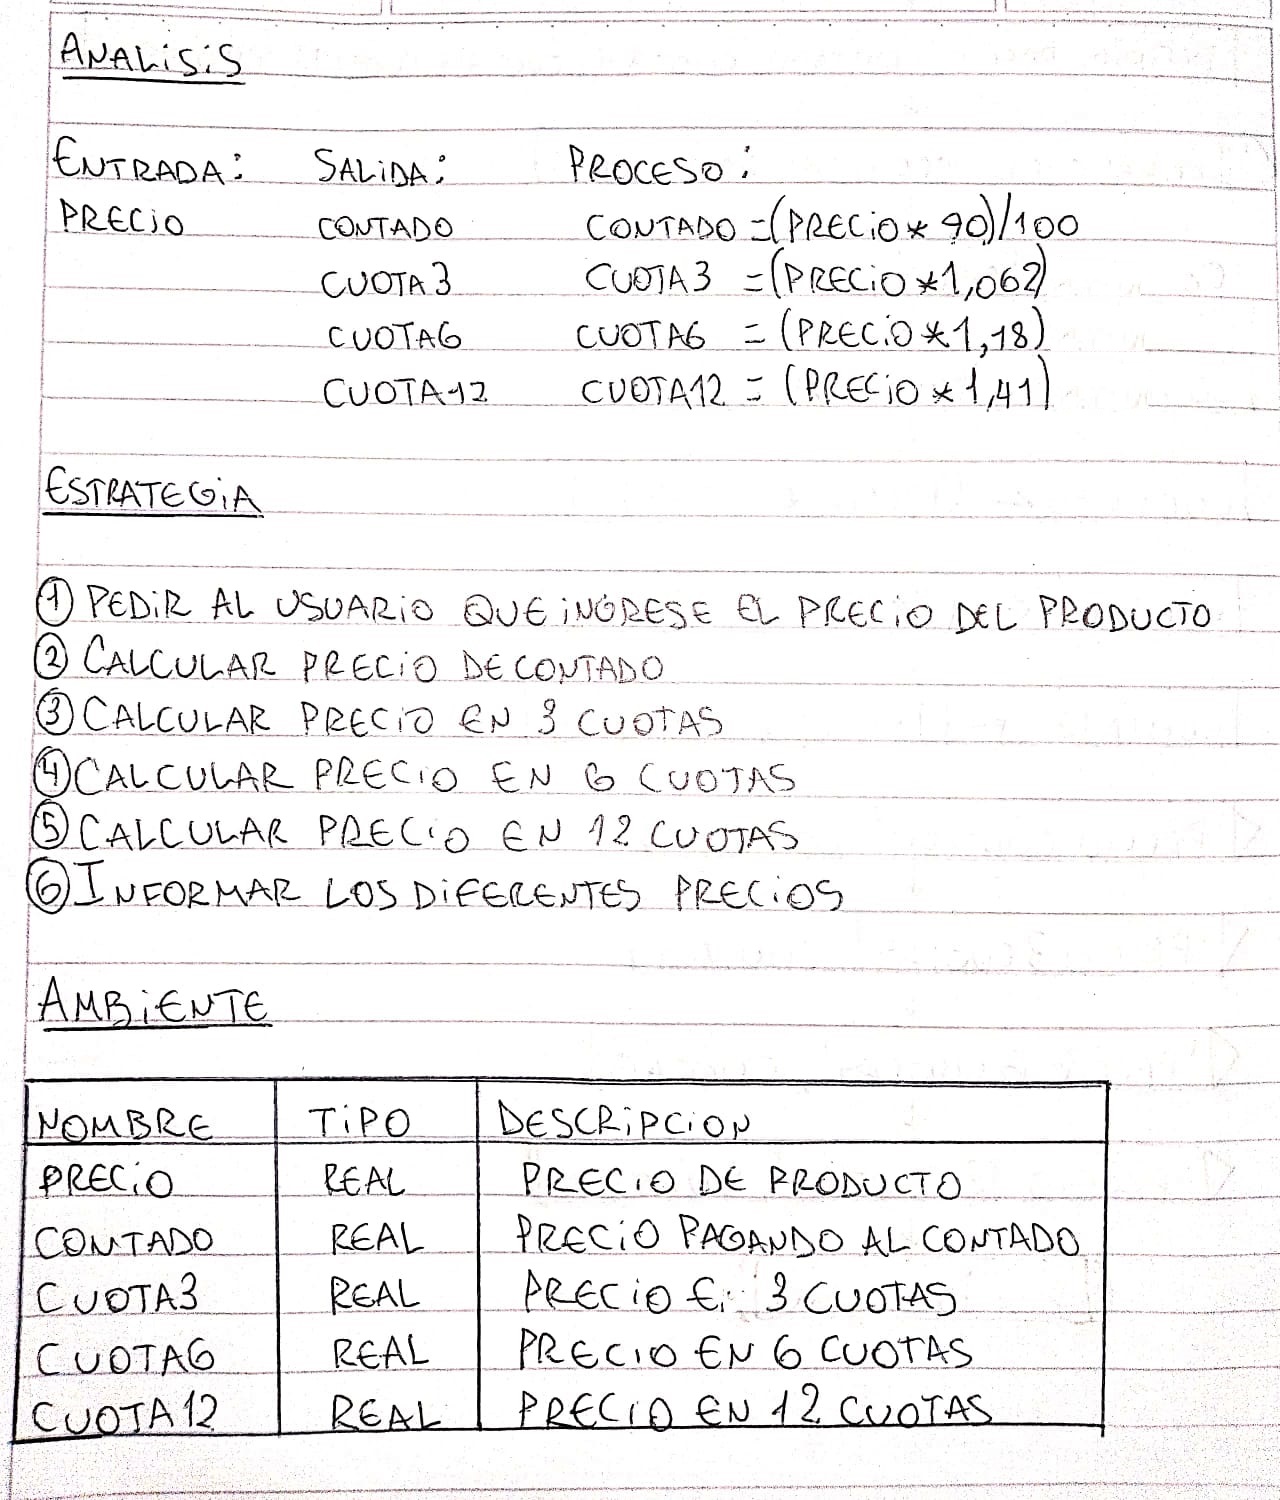 ANALISIS
ENTRADA: SALIDA: PROCESO:
PRECIO CONTADO CONTADO =(PRECIO * 90)/100
CUOTA3 CUOTA3 =(PRECIO *1,062)
CUOTA6 CUOTA6 = (PRECIO *1,18)
CUOTA12 CUOTA12 = (PRECIO * 1,41)
ESTRATEGIA
① PEDIR AL USUARIO QUE INGRESE EL PRECIO DEL PRODUCTO
② CALCULAR PRECIO DE CONTADO
③ CALCULAR PRECIO EN 3 CUOTAS
④ CALCULAR PRECIO EN 6 CUOTAS
⑤ CALCULAR PRECIO EN 12 CUOTAS
⑥ INFORMAR LOS DIFERENTES PRECIOS
AMBIENTE
NOMBRE TIPO DESCRIPCION
PRECIO REAL PRECIO DE PRODUCTO
CONTADO REAL PRECIO PAGANDO AL CONTADO
CUOTA3 REAL PRECIO EN 3 CUOTAS
CUOTA6 REAL PRECIO EN 6 CUOTAS
CUOTA12 REAL PRECIO EN 12 CUOTAS